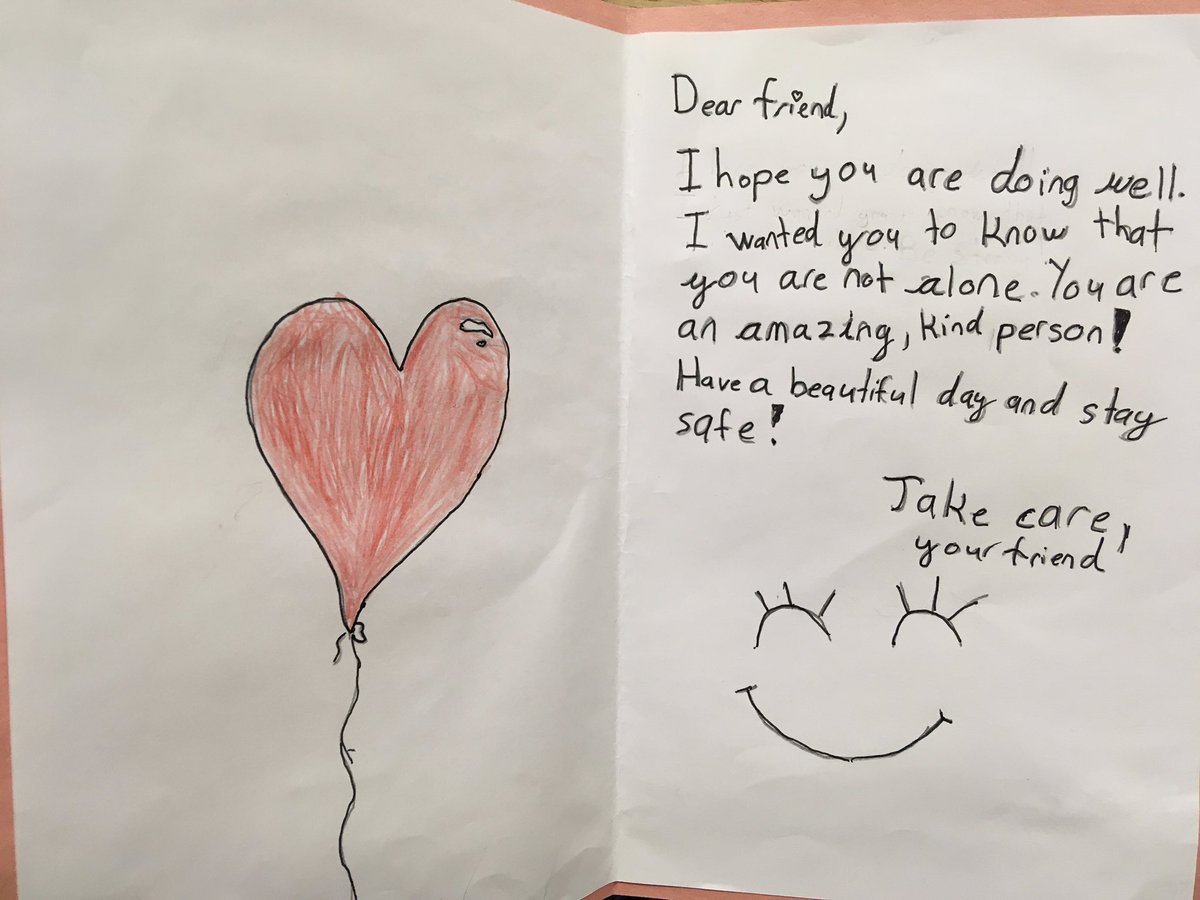 Dear friend,
I hope you are doing well.
I wanted you to know that
you are not alone. You are
an amazing, kind person!
Have a beautiful day and stay
safe!
Take care,
your friend